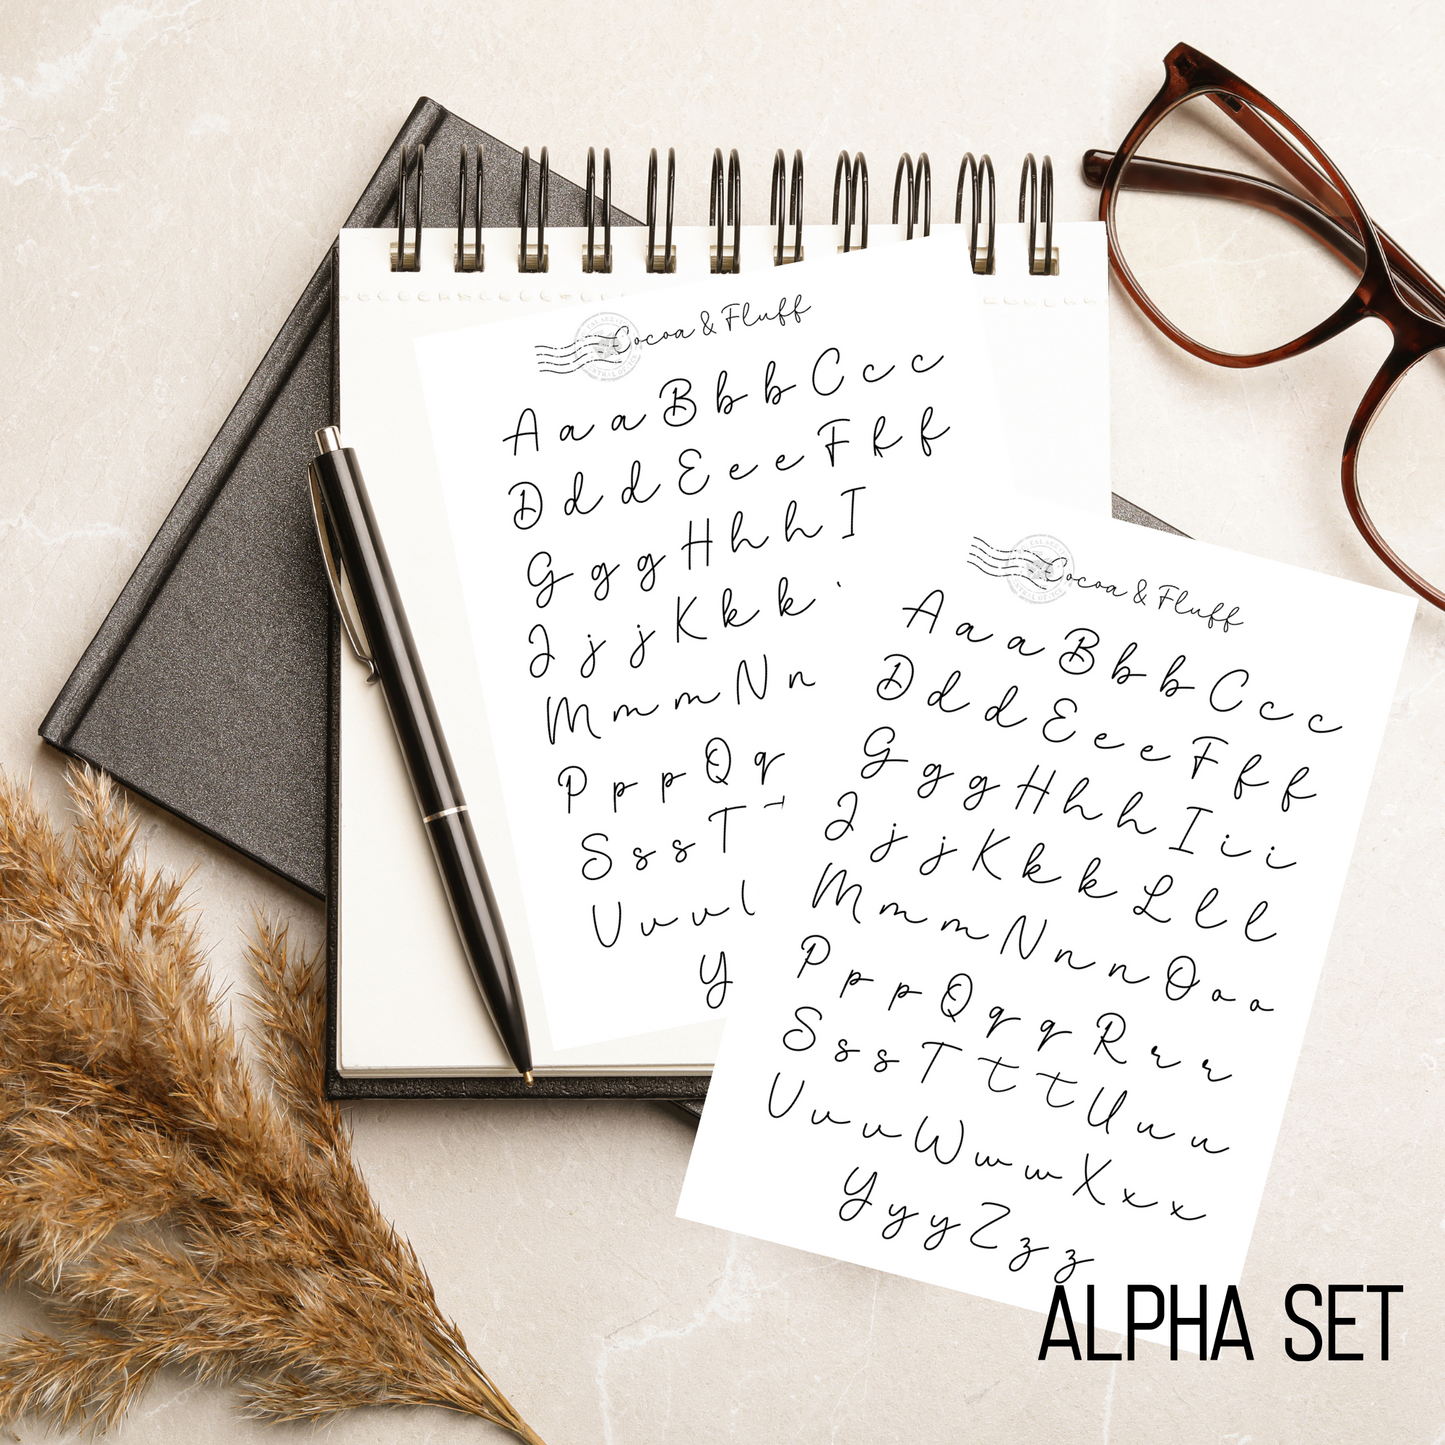 Cocoa & Fluff
A a a B b b C c c
D d d E e e F f f
G g g H h h I
J j j K k k
M m m N n
P p p Q q
S s s T
V v v
Y
Cocoa & Fluff
A a a B b b C c c
D d d E e e F f f
G g g H h h I i i
J j j K k k L l l
M m m N n n O o o
P p p Q q q R r r
S s s T t t U u u
V v v W w w X x x
Y y y Z z z
ALPHA SET